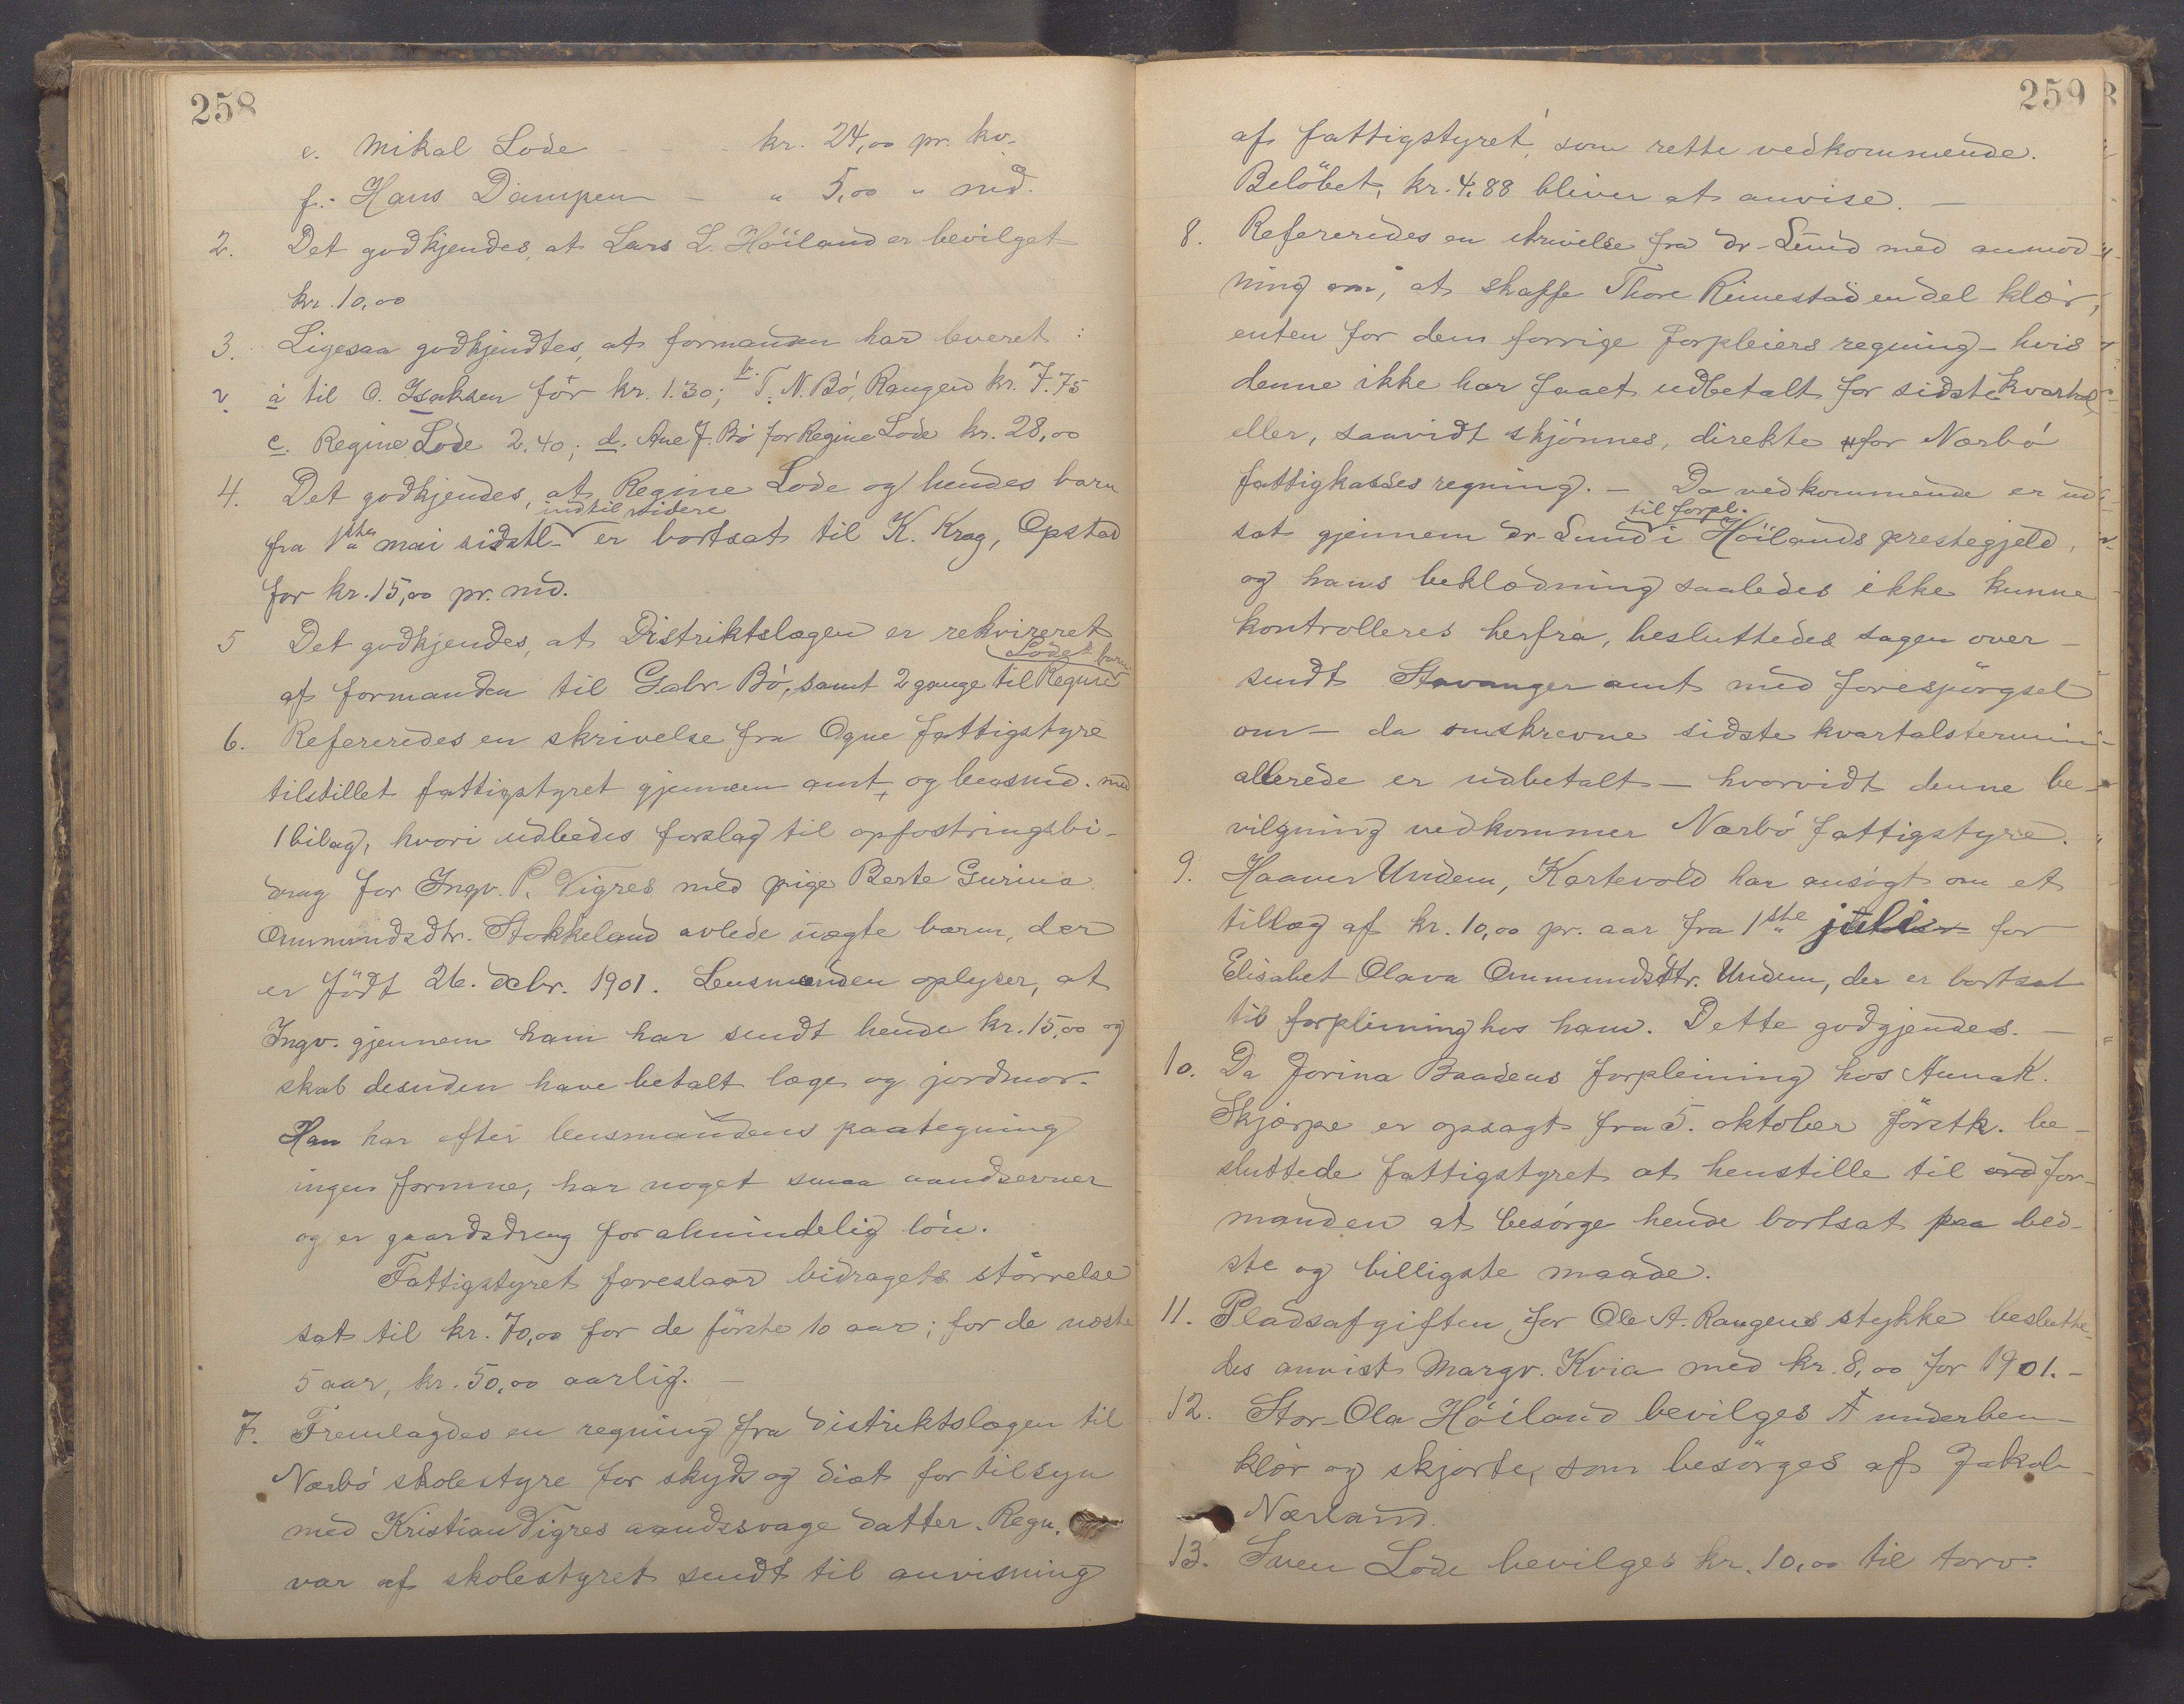 258
e. Mikal Lode - - - kr. 24,00 pr. kv.
f. Hans Dampen - " 5,00 " md.
2. Det godkjendes, at Lars L. Höiland er bevilget
kr. 10,00
3. Ligesaa godkjendtes, at formanden har leveret :
a til O. Isaksen för kr. 1.30; b. T. N. Bö, Raugen kr. 7.75
c. Regine Lode 2.40; d. Ane J. Bö for Regine Lode kr. 28,00
4. Det godkjendes, at Regine Lode og hendes barn
indtil videre
fra 1ste mai sidstl. er bortsat til K. Krag, Opstad
for kr. 15,00 pr. md.
5 Det godkjendes, at Distriktslægen er rekvireret
Lodes barn
af formanden til Gabr. Bö, samt 2 gange til Regine
6. Refereredes en skrivelse fra Ogne fattigstyre
tilstillet fattigstyret gjennem amt og lensmd. med
1 bilag, hvori udbedes forslag til opfostringsbi-
drag for Ingv. P. Vigres med pige Berte Gurina
Ommundsdtr. Stokkeland avlede uægte barn, der
er födt 26. decbr. 1901. Lensmanden oplyser, at
Ingv. gjennem ham har sendt hende kr. 15,00 og
skal desuden have betalt læge og jordmor.
Han har efter lensmandens paategning
ingen formue, har noget smaa aandsevner
og er gaardsdreng for almindelig lön.
Fattigstyret foreslaar bidragets störrelse
sat til kr. 70,00 for de förste 10 aar; for de næste
5 aar, kr. 50,00 aarlig. -
7. Fremlagdes en regning fra distriktslægen til
Nærbö skolestyre for skyds og diæt for tilsyn
med Kristian Vigres aandssvage datter. Regn.
var af skolestyret sendt til anvisning
259
af fattigstyret, som rette vedkommende.
Belöbet, kr. 4,88 bliver at anvise. -
8. Refereredes en skrivelse fra dr. Lund med anmod-
ning om, at skaffe Thore Rimestad en del klær,
enten for dem forrige forpleiers regning - hvis
denne ikke har faaet udbetalt for sidste kvartal,
eller, saavidt skjönnes, direkte for Nærbö
fattigkasses regning. - Da vedkommende er ud-
til forpl.
sat gjennem dr. Lund i Höilands prestegjeld,
og hans beklædning saaledes ikke kunne
kontrolleres herfra, besluttedes sagen over-
sendt Stavanger amt med forespörgsel
om - da omskrevne sidste kvartalstermin
allerede er udbetalt - hvorvidt denne be-
vilgning vedkommer Nærbö fattigstyre.
9. Haaver Undem, Kartevold har ansögt om et
tillæg af kr. 10,00 pr. aar fra 1ste juli for
Elisabet Olava Ommundsdtr. Undem, der er bortsat
til forpleining hos ham. Dette godgjendes. -
10. Da Jorina Baadens forpleining hos Anna K.
Skjærpe er opsagt fra 5. oktober förstk. be-
sluttede fattigstyret at henstille til for-
manden at besörge hende bortsat paa bed-
ste og billigste maade.
11. Pladsafgiften for Ole A. Raugens stykke beslutte-
des anvist Margv. Kvia med kr. 8,00 for 1901. -
12. Stor-Ola Höiland bevilges 1 underben-
klær og skjorte, som besörges af Jakob
Nærland.
13. Sven Lode bevilges kr. 10,00 til torv.